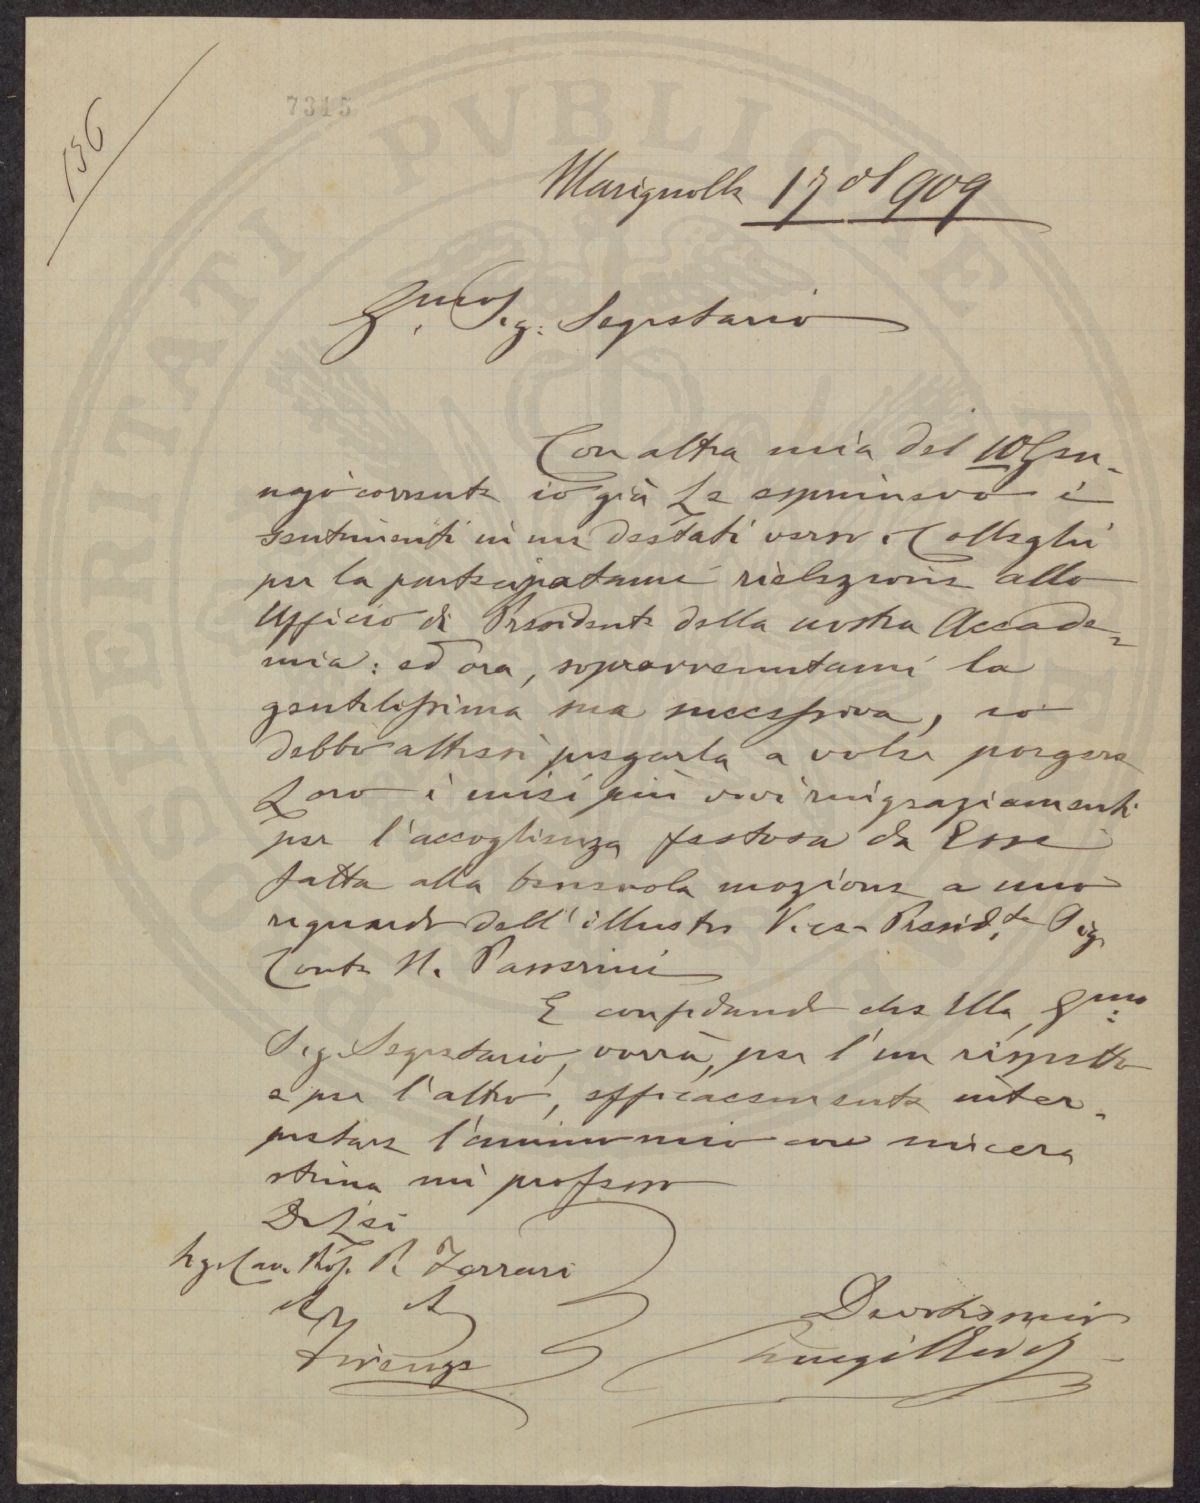 136
7315
PVBLICAE
PROSPERITATI
Marignolle 17 01 909
Sig: Segretario
Con altra mia del 10 Gen-
najo corrente io già Le esprimevo i
sentimenti in me destati verso i Colleghi
per la partecipatami rielezione allo
Ufficio di Presidente della nostra Accade-
mia: ed ora, sopravvenutami la
gentilissima sua successiva, io
debbo altresì pregarla a voler porgere
Loro i miei più vivi ringraziamenti
per l'accoglienza festosa da Esse
fatta alla benevola mozione a mio
riguardo dell'illustre Vice-Presid.te Sig.
Conte N. Passerini
E confidando che Ella,
Sig. Segretario, vorrà, per l'un rispetto
e per l'altro, efficacemente inter-
pretare l'animo mio con sincera
stima mi professo
Di Lei
Sig. Cav. Prof. P. Ferrari
Firenze
Devotissimo
Luigi